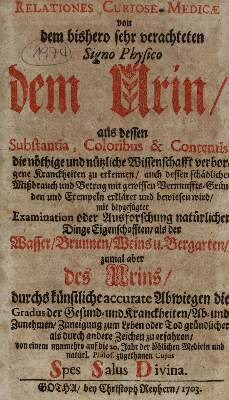 RELATIONES CURIOSE-MEDICÆ
von
dem bishero sehr verachteten
(1974)
Signo Physico
dem Urin/
aus dessen
Substantia, Coloribus & Contentis
die nöthige und nützliche Wissenschafft verbor-
gene Kranckheiten zu erkennen/ auch dessen schädlicher
Mißbrauch und Betrug mit gewissen Vernunffts-Grün-
den und Exempeln erkläret und bewiesen wird/
mit beygefügter
Examination oder Ausforschung natürlicher
Dinge Eigenschafften/ als der
Wasser/ Brunnen/ Weins u. Bergarten/
zumal aber
des Urins/
durchs künstliche accurate Abwiegen die
Gradus der Gesund- und Kranckheiten/ Ab- und
Zunehmen/ Zuneigung zum Leben oder Tod gründlicher
als durch andere Zeichen zu erfahren/
von einem nunmehro auf die 20. Jahr der Edlichen Medicin und
natürl. Philos. zugethanen Cujus
Spes Salus Divina.
GOTHA/ bey Christoph Reyhern/ 1703.